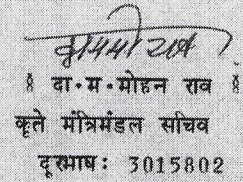 § दा·म·मोहन राव §
कृते मंत्रिमंडल सचिव
दूरभाष: 3015802